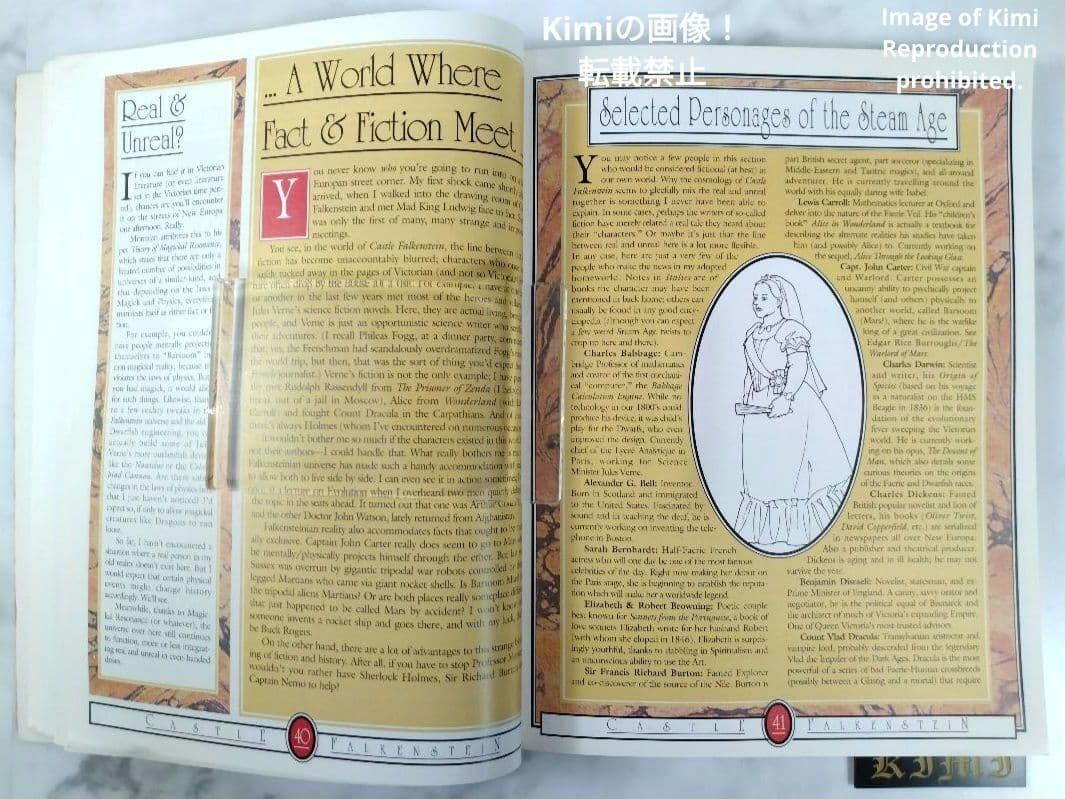 Kimiの画像！
転載禁止
Image of Kimi
Reproduction
prohibited.
Real &
Unreal?
If you can find it in Victorian
literature (or even literature
set in the Victorian time per-
iod), chances are you'll encounter
it on the streets of New Europa
one afternoon. Really.
Morrolan attributes this to his
pet Theory of Magickal Resonance,
which states that there are only a
limited number of possibilities in
universes of a similar kind, and
that depending on the laws
Magick and Physics, everything
manifests itself as either fact or fic-
tion.
For example, you couldn't
have people mentally projecting
themselves to "Barsoom" in
non-magickal reality, because it
violates the laws of physics. But
you had magick, it would allow
for such things. Likewise, thanks
to a few reality tweaks in the
Falkenstein universe and the aid
Dwarfish engineering, you can
actually build some of Jules
Verne's more outlandish devices
like the Nautilus or the Colum-
biad Cannon. Are there subtle
changes in the laws of physics here
that I just haven't noticed? I'd
expect so, if only to allow magickal
creatures like Dragons to run
So far, I haven't encountered a
situation where a real person in my
old realm doesn't exist here. But I
would expect that certain physical
events might change history
accordingly. We'll see.
Meanwhile, thanks to Magic-
kal Resonance (or whatever), the
universe over here still continues
to function, more or less integrat-
ing real and unreal in even-handed
doses.
... A World Where
Fact & Fiction Meet
You never know who you're going to run into on
Europan street corner. My first shock came shortly
arrived, when I walked into the drawing room of
Falkenstein and met Mad King Ludwig face to face.
was only the first of many, many strange and
meetings.
You see, in the world of Castle Falkenstein, the line between
fiction has become unaccountably blurred; characters who
safely tucked away in the pages of Victorian (and not so Victorian)
ture often drop by the house for a visit. For example, I have at
or another in the last few years met most of the heroes and
Jules Verne's science fiction novels. Here, they are actual living,
people, and Verne is just an opportunistic science writer who
their adventures. (I recall Phileas Fogg, at a dinner party,
that the Frenchman had scandalously overdramatized Fogg's
the world trip, but then, that was the sort of thing you'd expect
journalist.) Verne's fiction is not the only example; I have
met Rudolph Rassendyll from The Prisoner of Zenda (I helped
break out of a jail in Moscov), Alice from Wonderland (with
Carroll) and fought Count Dracula in the Carpathians. And of
there's always Holmes (whom I've encountered on numerous
It wouldn't bother me so much if the characters existed in this
not their authors—I could handle that. What really bothers me is
Falkensteinian universe has made such a handy accommodation
to allow both to live side by side. I can even see it in action sometimes
a lecture on Evolution when I overheard two men quietly
the topic in the seats ahead. It turned out that one was Arthur Conan
and the other Doctor John Watson, lately returned from Afghanistan.
Falkensteinian reality also accommodates facts that ought to be
ally exclusive. Captain John Carter really does seem to go to Mars
he mentally/physically projects himself through the ether. But
Sussex was overrun by gigantic tripodal war robots controlled by
legged Martians who came via giant rocket shells. Is Barsoom Mars
the tripodal aliens Martians? Or are both places really someplace
that just happened to be called Mars by accident? I won't know
someone invents a rocket ship and goes there, and with my luck,
be Buck Rogers.
On the other hand, there are a lot of advantages to this strange
ing of fiction and history. After all, if you have to stop Professor
wouldn't you rather have Sherlock Holmes, Sir Richard Burton
Captain Nemo to help?
CASTLE 40 FALKENSTEIN
Selected Personages of the Steam Age
You may notice a few people in this section
who would be considered fictional (at best) in
our own world. Why the cosmology of Castle
Falkenstein seems to gleefully mix the real and unreal
together is something I never have been able to
explain. In some cases, perhaps the writers of so-called
fiction have merely related a real tale they heard about
their "characters." Or maybe it's just that the line
between real and unreal here is a lot more flexible.
In any case, here are just a very few of the
people who make the news in my adopted
homeworld. Names in Italics are of
books the character may have been
mentioned in back home; others can
usually be found in any good ency-
clopedia (although you can expect
a few weird Steam Age twists to
crop up here and there).
Charles Babbage: Cam-
bridge Professor of mathematics
and creator of the first mechani-
cal "computer," the Babbage
Calculation Engine. While no
technology in our 1800's could
produce his device, it was child's
play for the Dwarfs, who even
improved the design. Currently
chief of the Lyceé Analytique in
Paris, working for Science
Minister Jules Verne.
Alexander G. Bell: Inventor.
Born in Scotland and immigrated
to the United States. Fascinated by
sound and in teaching the deaf, he is
currently working on inventing the tele-
phone in Boston.
Sarah Bernhardt: Half-Faerie French
actress who will one day be one of the most famous
celebrities of the day. Right now making her debut on
the Paris stage, she is beginning to establish the reputa-
tion which will make her a worldwide legend.
Elizabeth & Robert Browning: Poetic couple
best known for Sonnets from the Portuguese, a book of
love sonnets Elizabeth wrote for her husband Robert
(with whom she eloped in 1846). Elizabeth is surpris-
ingly youthful, thanks to dabbling in Spiritualism and
an unconscious ability to use the Art.
Sir Francis Richard Burton: Famed Explorer
and co-discoverer of the source of the Nile. Burton is
part British secret agent, part sorceror (specializing in
Middle-Eastern and Tantric magics), and all-around
adventurer. He is currently travelling around the
world with his equally daring wife Isabel.
Lewis Carroll: Mathematics lecturer at Oxford and
delver into the nature of the Faerie Veil. His "children's
book" Alice in Wonderland is actually a textbook for
describing the alternate realities his studies have taken
him (and possibly Alice) to. Currently working on
the sequel, Alice Through the Looking Glass.
Capt. John Carter: Civil War captain
and Warlord. Carter possesses an
uncanny ability to psychically project
himself (and others) physically to
another world, called Barsoom
(Mars!), where he is the warlike
king of a great civilization. See
Edgar Rice Burroughs/The
Warlord of Mars.
Charles Darwin: Scientist
and writer, his Origin of
Species (based on his voyage
as a naturalist on the HMS
Beagle in 1836) is the foun-
dation of the evolutionary
fever sweeping the Victorian
world. He is currently work-
ing on his opus, The Descent of
Man, which also details some
curious theories on the origins
of the Faerie and Dwarfish races.
Charles Dickens: Famed
British popular novelist and lion of
letters, his books (Oliver Twist,
David Copperfield, etc.) are serialized
in newspapers all over New Europa.
Also a publisher and theatrical producer.
Dickens is aging and in ill health; he may not
survive the year.
Benjamin Disraeli: Novelist, statesman, and ex-
Prime Minister of England. A canny, savvy orator and
negotiator, he is the political equal of Bismarck and
the architect of much of Victoria's expanding Empire.
One of Queen Victoria's most trusted advisors.
Count Vlad Dracula: Transylvanian aristocrat and
vampire lord, probably descended from the legendary
Vlad the Impaler of the Dark Ages. Dracula is the most
powerful of a series of bad Faerie-Human crossbreeds
(possibly between a Glaistig and a mortal) that require
CASTLE 41 FALKENSTEIN
KIMI